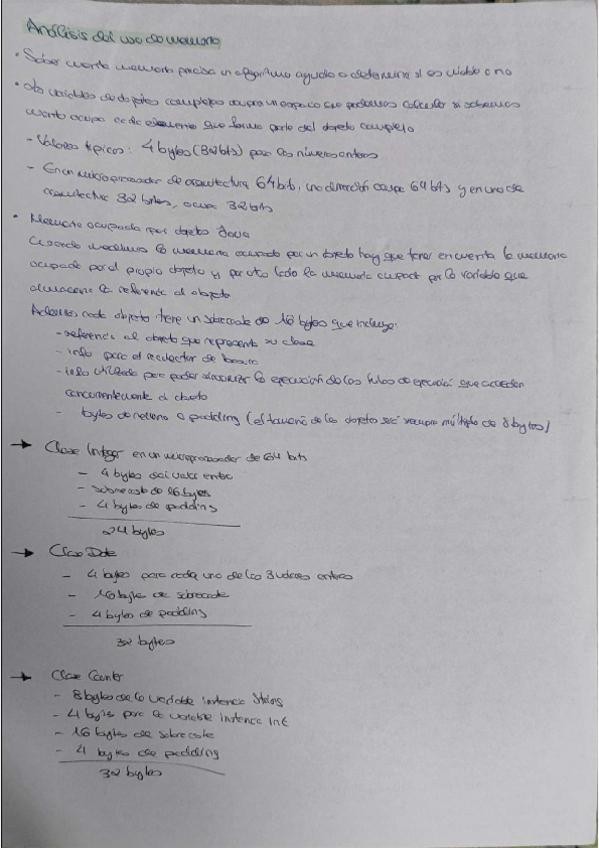 Análisis del uso de memoria
• Saber cuanta memoria precisa un algoritmo ayuda a determinar si es viable o no
• Las variables de objetos complejos ocupan un espacio que podemos calcular si sabemos
cuanto ocupa cada elemento que forma parte del objeto complejo
- Valores típicos: 4 bytes (32 bits) para los números enteros
- En un microprocesador de arquitectura 64 bits, una dirección ocupa 64 bits y en uno de
arquitectura 32 bytes, ocupa 32 bits
• Memoria ocupada por objetos Java
Cuando medimos la memoria ocupada por un objeto hay que tener en cuenta la memoria
ocupada por el propio objeto y por otro lado la memoria ocupada por la variable que
almacena la referencia al objeto
Además cada objeto tiene un sobrecoste de 16 bytes que incluye:
- referencia al objeto que representa su clase
- info para el recolector de basura
- info utilizada para poder sincronizar la ejecución de los hilos de ejecución que acceden
concurrentemente al objeto
- bytes de relleno o padding (el tamaño de los objetos será siempre múltiplo de 8 bytes)
→ Clase Integer en un microprocesador de 64 bits
- 4 bytes del valor entero
- sobrecoste de 16 bytes
- 4 bytes de padding
24 bytes
→ Clase Date
- 4 bytes para cada uno de los 3 valores enteros
- 16 bytes de sobrecoste
- 4 bytes de padding
32 bytes
→ Clase Counter
- 8 bytes de la variable instancia String
- 4 bytes para la variable instancia int
- 16 bytes de sobrecoste
- 4 bytes de padding
32 bytes